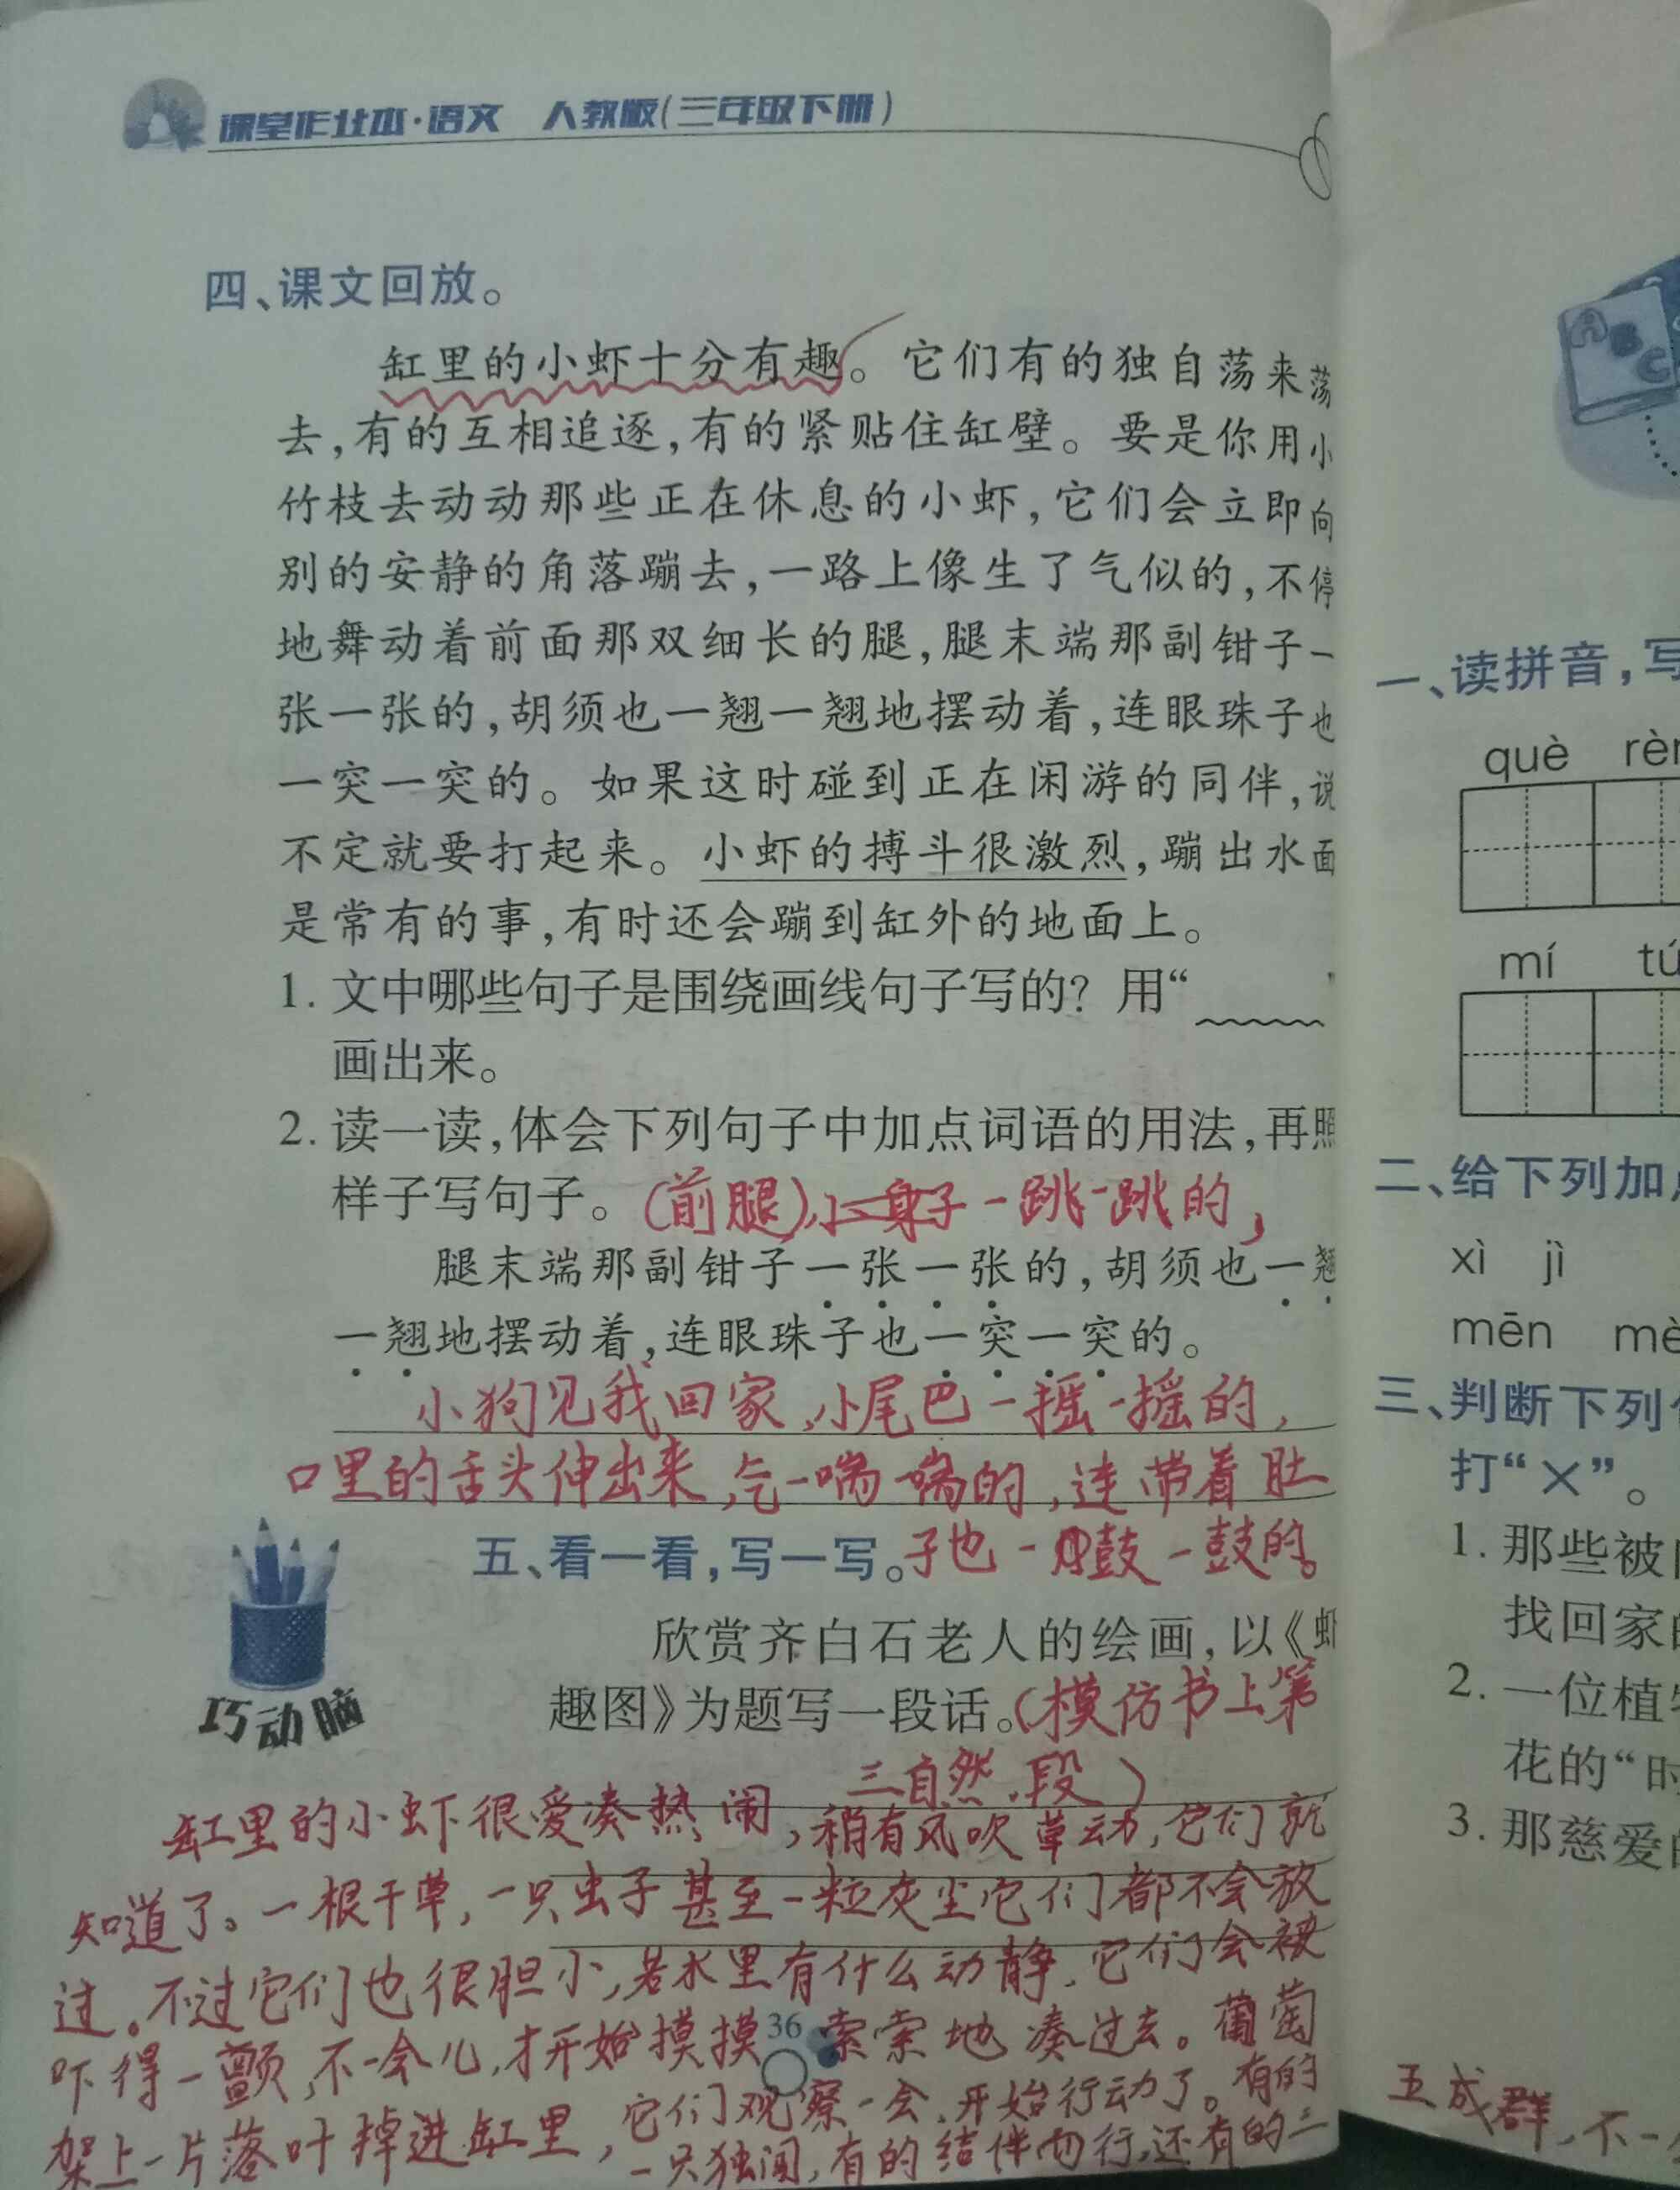 课堂作业本·语文 人教版(三年级下册)
四、课文回放。
缸里的小虾十分有趣。它们有的独自荡来荡
去,有的互相追逐,有的紧贴住缸壁。要是你用小
竹枝去动动那些正在休息的小虾,它们会立即向
别的安静的角落蹦去,一路上像生了气似的,不停
地舞动着前面那双细长的腿,腿末端那副钳子一
张一张的,胡须也一翘一翘地摆动着,连眼珠子也
一突一突的。如果这时碰到正在闲游的同伴,说
不定就要打起来。小虾的搏斗很激烈,蹦出水面
是常有的事,有时还会蹦到缸外的地面上。
1. 文中哪些句子是围绕画线句子写的? 用“﹏﹏”
画出来。
2. 读一读,体会下列句子中加点词语的用法,再照
样子写句子。(前腿),小身子一跳一跳的,
腿末端那副钳子一张一张的,胡须也一翘
一翘地摆动着,连眼珠子也一突一突的。
小狗见我回家,小尾巴一摇一摇的,
口里的舌头伸出来,气一喘一喘的,连带着肚
子也一鼓一鼓的。
巧动脑
五、看一看,写一写。
欣赏齐白石老人的绘画,以《虾
趣图》为题写一段话。(模仿书上第
三自然段)
缸里的小虾很爱凑热闹,稍有风吹草动,它们就
知道了。一根干草,一只虫子甚至一粒灰尘它们都不会放
过。不过它们也很胆小,若水里有什么动静,它们会被
吓得一颤,不一会儿,才开始摸摸索索地凑过去。葡萄
架上一片落叶掉进缸里,它们观察一会,开始行动了。有的
一只独闯,有的结伴而行,还有的三
36
一、读拼音,写
què
mí
二、给下列加
xì jì
mēn
三、判断下列
打“×”。
1. 那些被
找回家
2. 一位植
花的“时
3. 那慈爱
五成群,不一